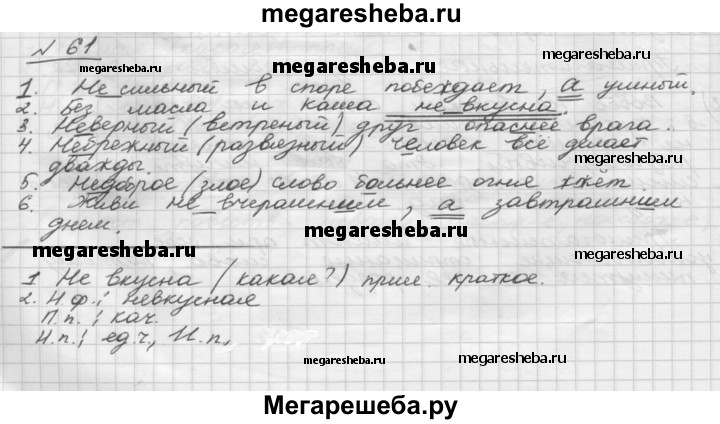 megaresheba.ru
№ 61
megaresheba.ru
megaresheba.ru
megaresheba.ru
1. Не сильный в споре побеждает, а умный.
2. Без масла и каша не вкусна.
3. Неверный (ветреный) друг опаснее врага.
4. Небрежный (развязный) человек всё делает
дважды.
megaresheba.ru
megaresheba.ru
5. Недоброе (злое) слово больнее огня жжёт.
6. Живи не вчерашним, а завтрашним
днем.
megaresheba.ru
megaresheba.ru
megaresheba.ru
1 Не вкусна (какая?) прил. краткое.
2. Н.ф.: невкусная
П.п.: кач.
Н.п.: ед.ч., И.п.,
megaresheba.ru
megaresheba.ru
Мегарешеба.ру